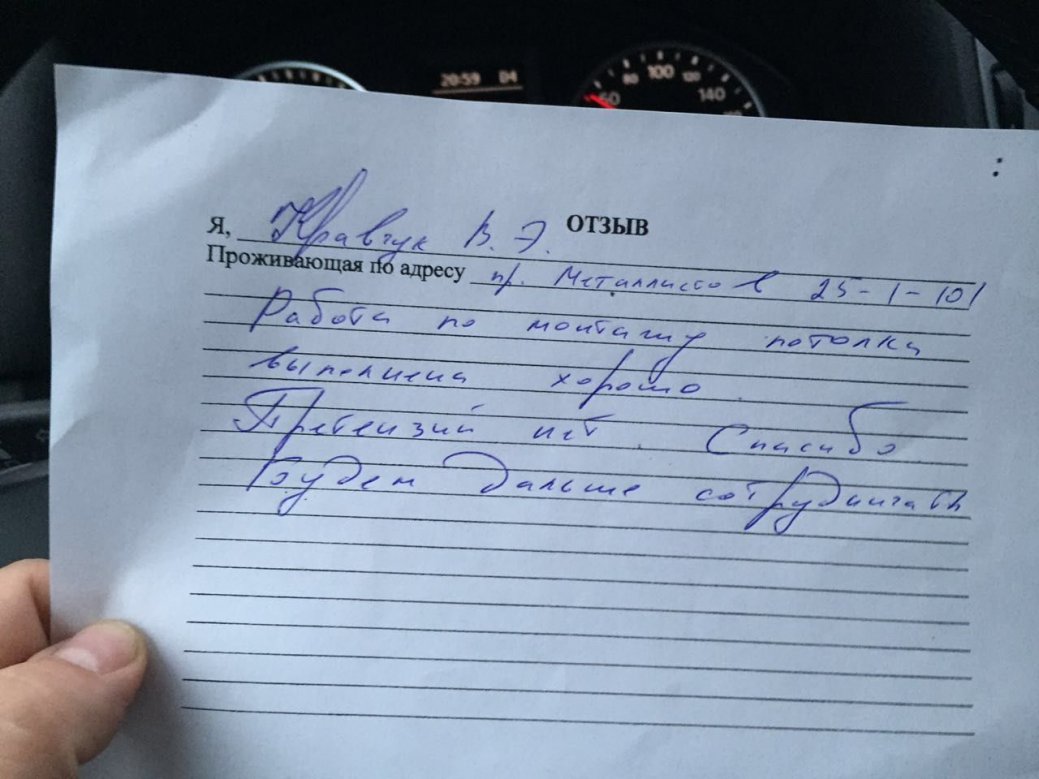 20:59 D4
80 100 120
60 140
ОТЗЫВ
Я, Кравчук В. Э.
Проживающая по адресу пр. Металлистов 25-1-101
Работа по монтажу потолка
выполнена хорошо.
Претензий нет. Спасибо
Будем дальше сотрудничать